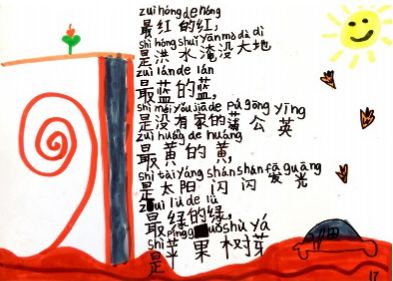 zuì hóng de hóng
最红的红,
shì hóng shuǐ yān mò dà dì
是洪水淹没大地
zuì lán de lán
最蓝的蓝,
shì méi yǒu jiā de pú gōng yīng
是没有家的蒲公英
zuì huáng de huáng
最黄的黄,
shì tài yáng shǎn shǎn fā guāng
是太阳闪闪发光
zuì lǜ de lǜ
最绿的绿,
shì píng guǒ shù yá
是苹果树芽